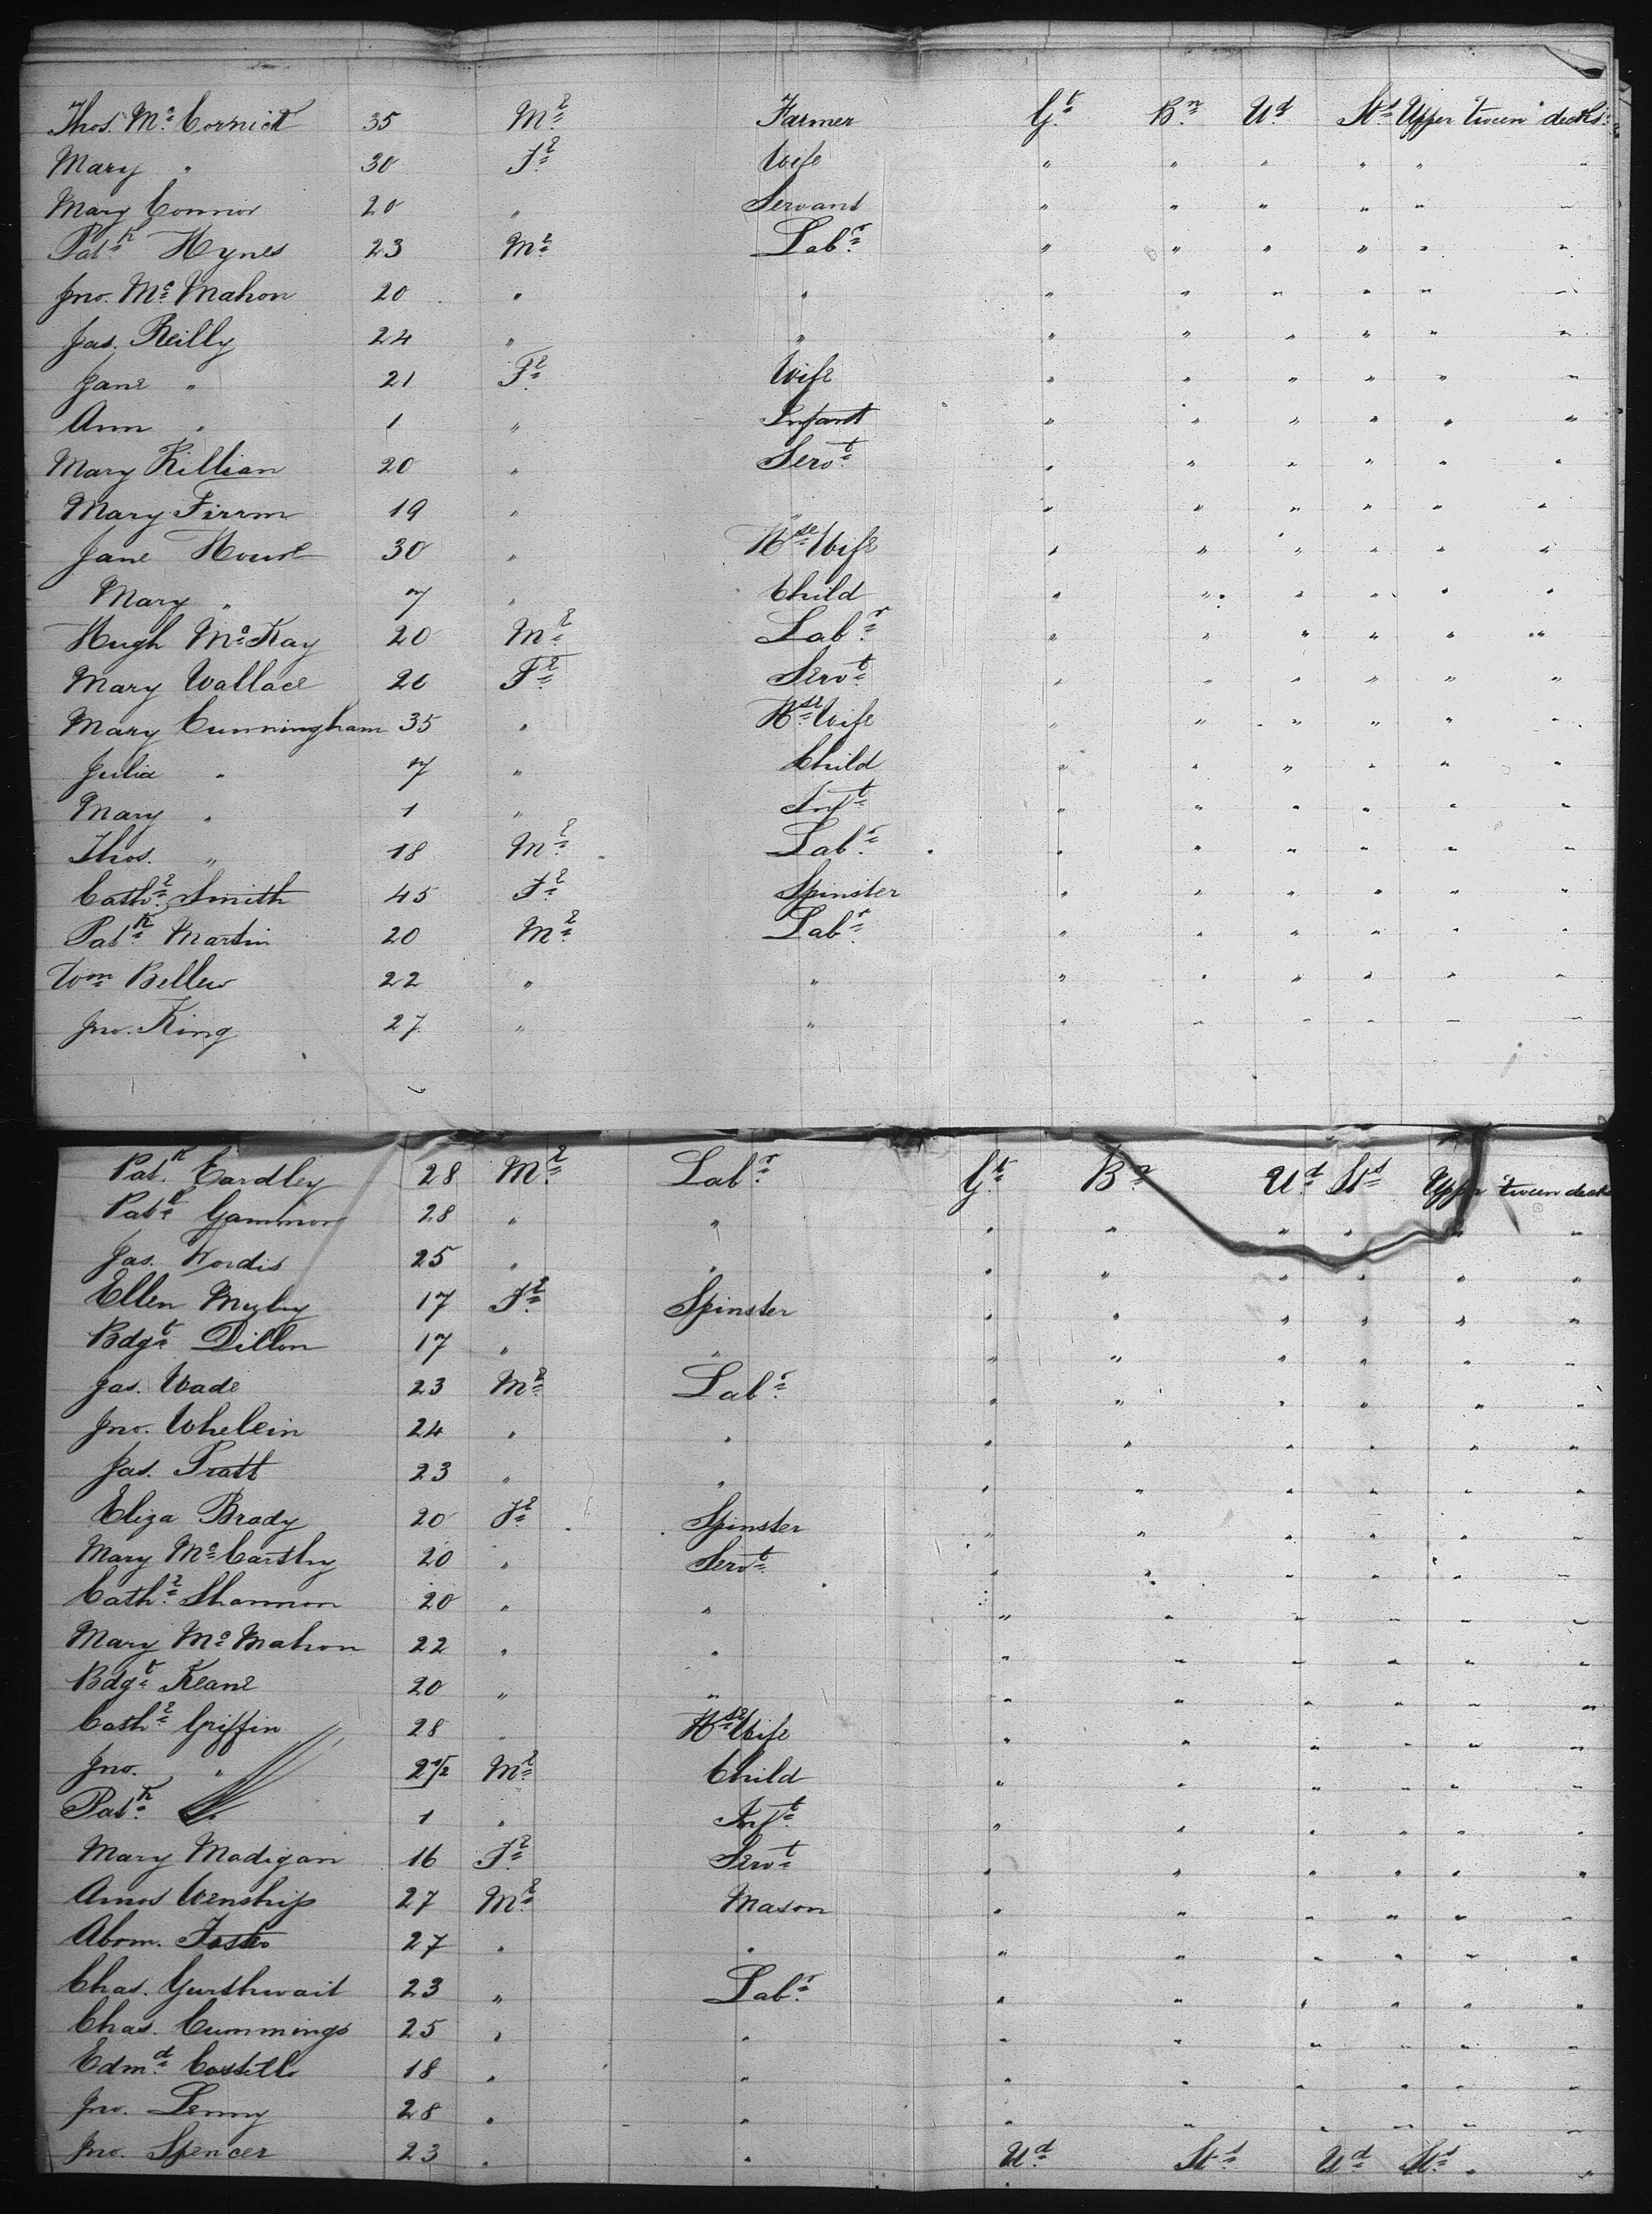 Thos. Mc Cornick 35 Me Farmer Gt Bn Ud Sts Upper 'tween decks
Mary " 30 Fe Wife " " " " " "
Mary Connor 20 " Servant " " " " " "
Patk Hynes 23 Me Labr " " " " " "
Jno. Mc Mahon 20 " " " " " " " "
Jas. Reilly 24 " " " " " " " "
Jane " 21 Fe Wife " " " " " "
Ann " 1 " Infant " " " " " "
Mary Killian 20 " Servt " " " " " "
Mary Firrm 19 " " " " " " " "
Jane Hourl 30 " Hse Wife " " " " " "
Mary " 7 " Child " " " " " "
Hugh Mc Kay 20 Me Labr " " " " " "
Mary Wallace 20 Fe Servt " " " " " "
Mary Cunningham 35 " Hse Wife " " " " " "
Julia " 7 " Child " " " " " "
Mary " 1 " Inft " " " " " "
Thos. " 18 Me Labr " " " " " "
Cathe Smith 45 Fe Spinster " " " " " "
Patk Martin 20 Me Labr " " " " " "
Wm Bellew 22 " " " " " " " "
Jno. King 27 " " " " " " " "
Patk Eardley 28 Me Labr Gt Bn Ud Sts Upper 'tween decks
Patk Gammon 28 " " " " " " " "
Jas. Nordis 25 " " " " " " " "
Ellen 17 Fe Spinster " " " " " "
Bdgt Dillon 17 " " " " " " " "
Jas. Wade 23 Me Labr " " " " " "
Jno. Whelein 24 " " " " " " " "
Jas. Pratt 23 " " " " " " " "
Eliza Brady 20 Fe Spinster " " " " " "
Mary Mc Carthy 20 " Servt " " " " " "
Cathe Shannon 20 " " " " " " " "
Mary Mc Mahon 22 " " " " " " " "
Bdgt Keane 20 " " " " " " " "
Cathe Griffin 28 " Hse Wife " " " " " "
Jno. " Me Child " " " " " "
Patk " 1 " Inft " " " " " "
Mary Madigan 16 Fe Servt " " " " " "
Amos Wenship 27 Me Mason " " " " " "
Abom. Foster 27 " " " " " " " "
Chas. Gursthwait 23 " Labr " " " " " "
Chas. Cummings 25 " " " " " " " "
Edmd Costello 18 " " " " " " " "
Jno. Lenny 28 " " " " " " " "
Jno. Spencer 23 " " Ud Sts Ud Sts " "